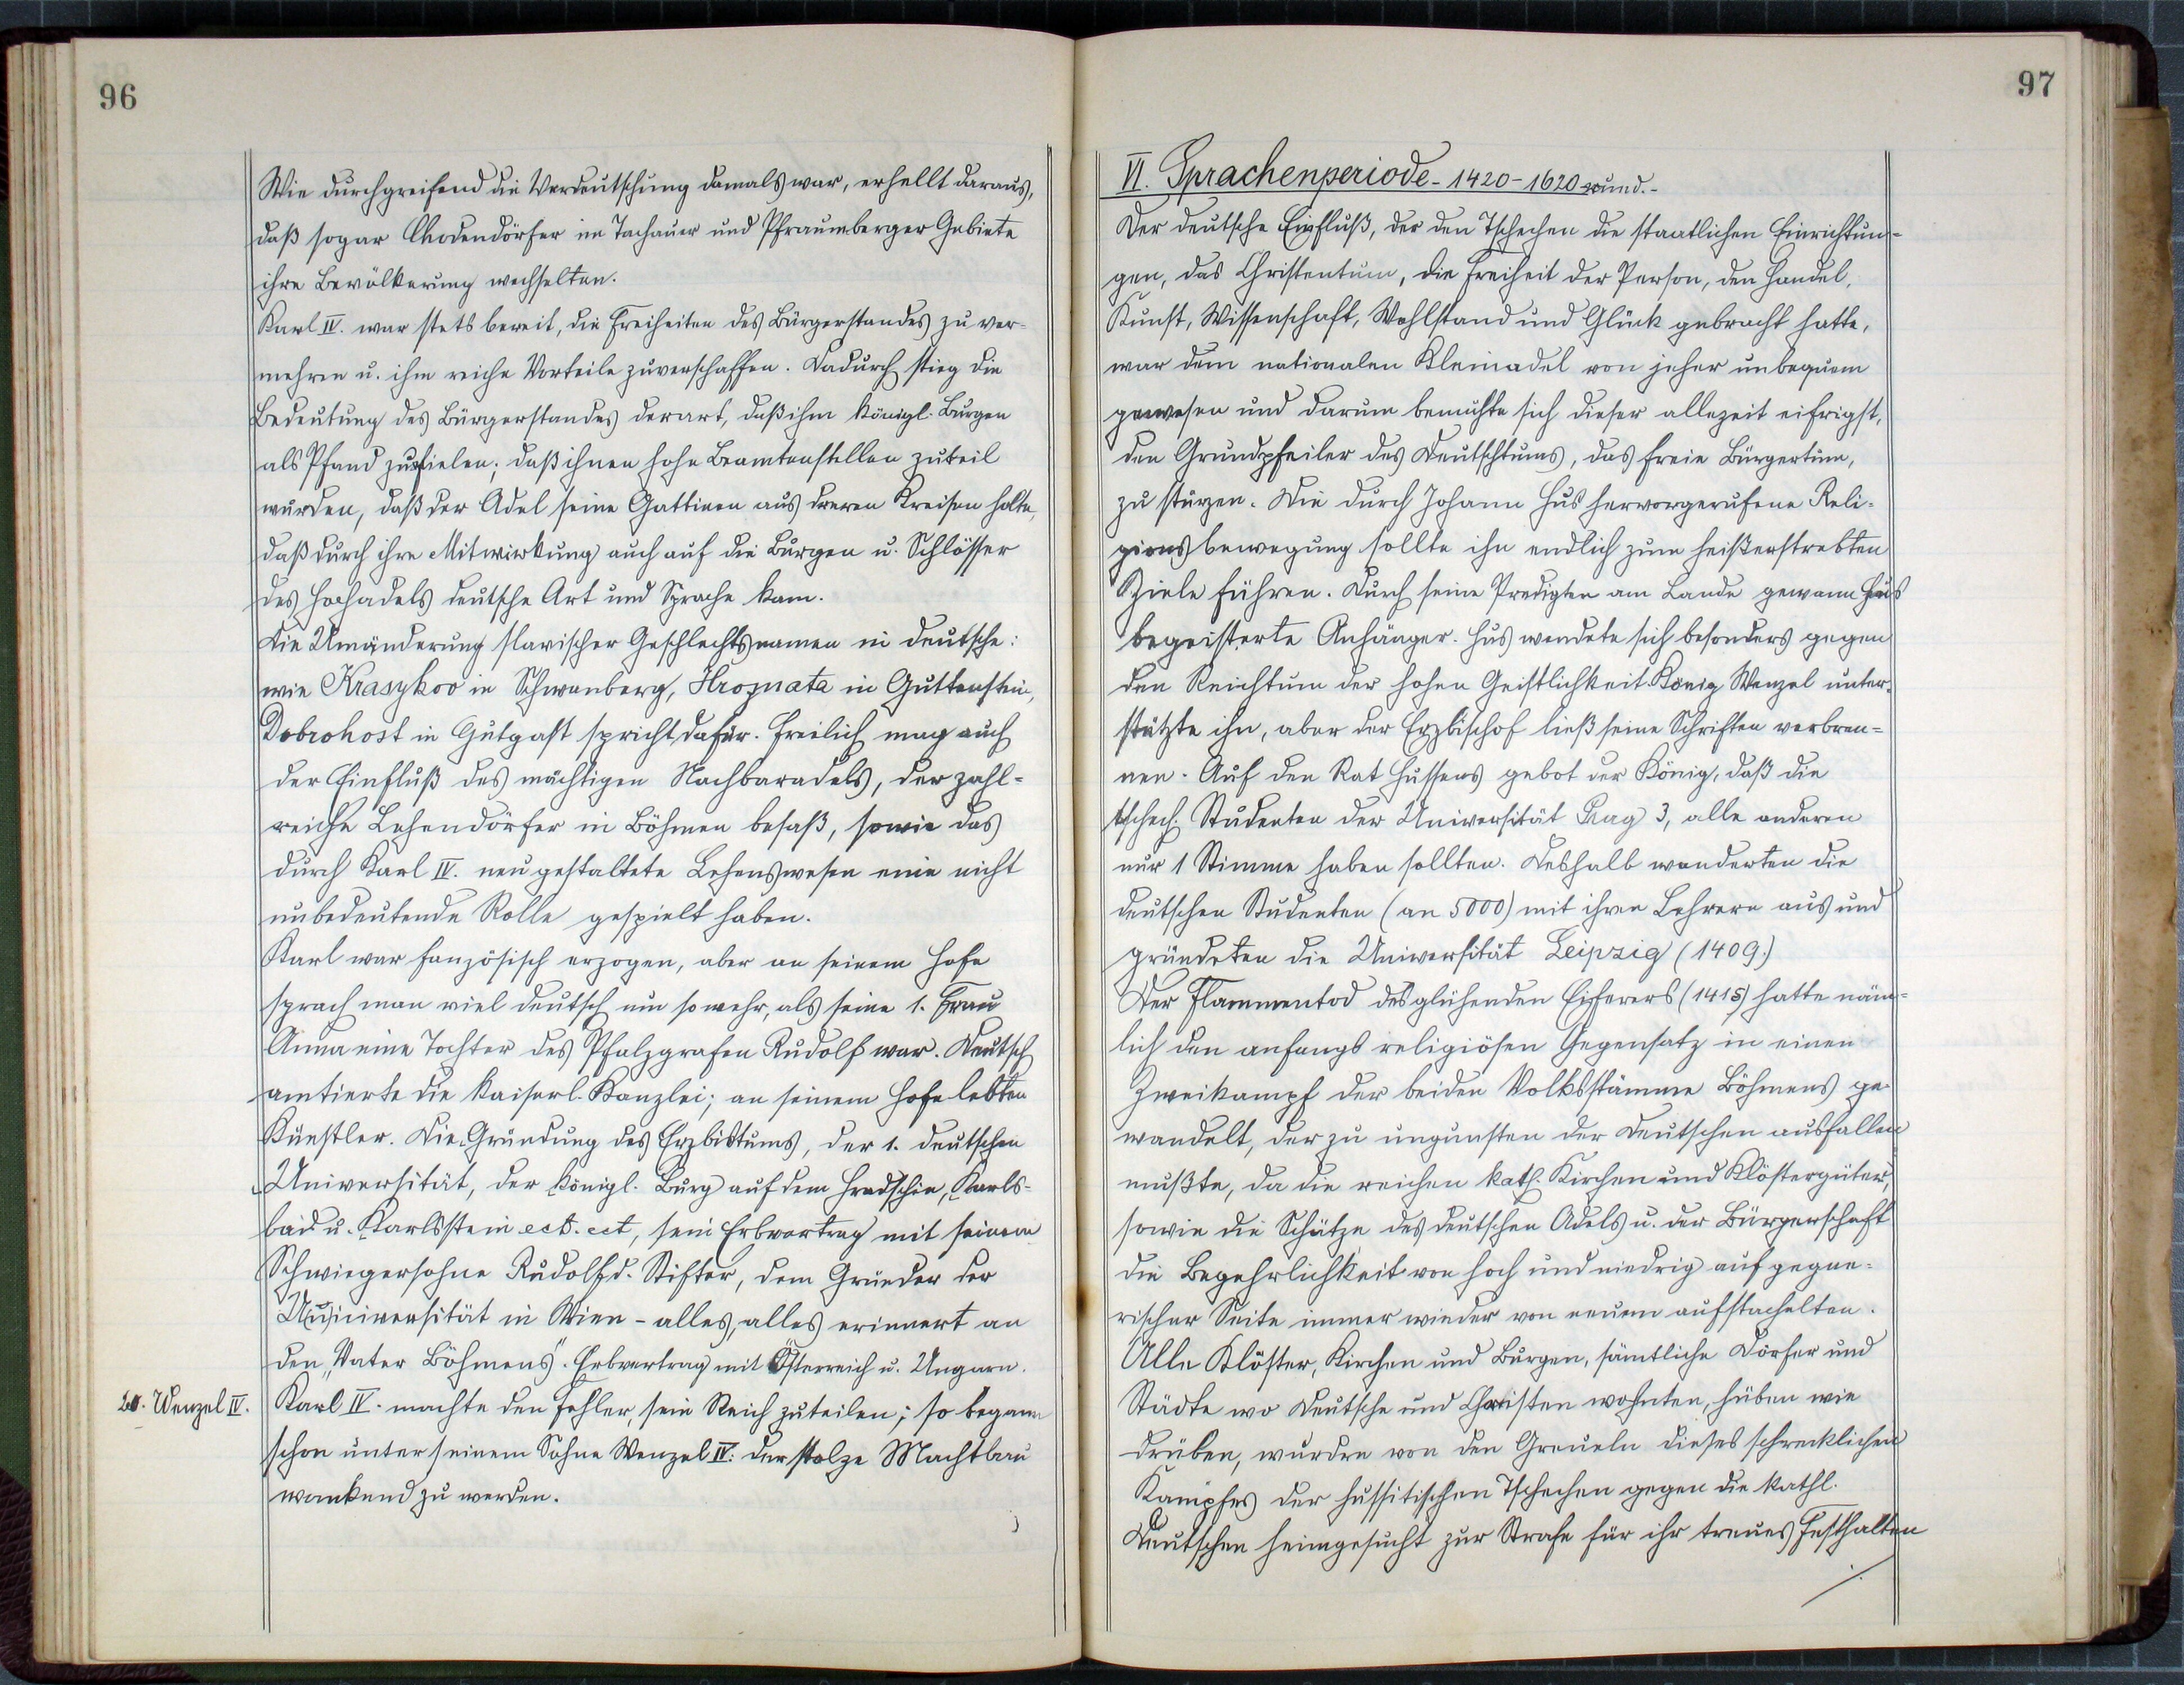 96
Wie durchgreifend die Verdeutschung damals war, erhellt daraus,
daß sogar Chodendörfer im Tachauer und Pfraumberger Gebiete
ihre Bevölkerung wechselten.
Karl IV. war stets bereit, die Freiheiten des Bürgerstandes zu ver-
mehren u. ihm reiche Vorteile zuverschaffen. Dadurch stieg die
Bedeutung des Bürgerstandes derart, daß ihm königl. Burgen
als Pfand zufielen; daß ihnen hohe Beamtenstellen zuteil
wurden, daß der Adel seine Gattinen aus deren Kreisen holte,
daß durch ihre Mitwirkung auch auf die Burgen u. Schlösser
des Hochadels deutsche Art und Sprache kam.
Die Umänderung slavischer Geschlechtsnamen in deutsche:
wie Krasykov in Schwanberg, Hroznata in Guttenstein,
Dobrohost in Gutgast spricht dafür. Freilich mag auch
der Einfluß des mächtigen Nachbaradels, der zahl-
reiche Lehendörfer in Böhmen besaß, sowie das
durch Karl IV. neu gestaltete Lehenswesen eine nicht
unbedeutende Rolle gespielt haben.
Karl war fanzösisch erzogen, aber an seinem Hofe
sprach man viel deutsch um so mehr, als seine 1. Frau
Anna eine Tochter des Pfalzgrafen Rudolf war. Deutsch
amtierte die kaiserl. Kanzlei; an seinem Hofe lebten
Künstler. Die Gründung des Erzbistums, der 1. deutschen
Universität, der königl. Burg auf dem Hradschin, Karls-
bad u. Karlsstein ect. ect, sein Erbvertrag mit seinem
Schwiegersohne Rudolf d. Stifter, dem Gründer der
Universität in Wien - alles, alles erinnert an
den "Vater Böhmens". Erbvertrag mit Österreich u. Ungarn.
Wenzel IV.
Karl IV. machte den Fehler, sein Reich zuteilen; so begann
schon unter seinem Sohne Wenzel IV. der stolze Machtbau
wankend zu werden.
97
VI. Sprachenperiode - 1420 - 1620 rund. -
Der deutsche Einfluß, der den Tschechen die staatlichen Einrichtun-
gen, das Christentum, die Freiheit der Person, den Handel,
Kunst, Wissenschaft, Wohlstand und Glück gebracht hatte,
war dem nationalen Kleinadel von jeher unbequem
gewesen und darum bemühte sich dieser allezeit eifrigst,
den Grundpfeiler des Deutschtums, das freie Bürgertum,
zu stürzen. Die durch Johann Hus hervorgerufene Reli-
gionsbewegung sollte ihn endlich zum heißerstrebten
Ziele führen. Durch seine Predigten am Lande gewann Hus
begeisterte Anhänger. Hus wendete sich besonders gegen
den Reichtum der hohen Geistlichkeit. König Wenzel unter-
stützte ihn, aber der Erzbischof ließ seine Schriften verbren-
nen. Auf den Rat Hussens gebot der König, daß die
tschech. Studenten der Universität Prag 3, alle anderen
nur 1 Stimme haben sollten. Deshalb wanderten die
deutschen Studenten (an 5000) mit ihren Lehrern aus und
gründeten die Universität Leipzig (1409.)
Der Flammentod des glühenden Eiferers (1415) hatte näm-
lich den anfangs religiösen Gegensatz in einen
Zweikampf der beiden Volksstämme Böhmens ge-
wandelt, der zu ungunsten der Deutschen ausfallen
mußte, da die reichen kath. Kirchen und Klöstergüter,
sowie die Schätze des deutschen Adels u. der Bürgerschaft
die Begehrlichkeit von hoch und niedrig auf gegne-
rischer Seite immer wieder von neuem aufstachelten.
Alle Klöster, Kirchen und Burgen, sämtliche Dörfer und
Städte wo Deutsche und Christen wohnten, hüben wie
drüben, wurden von den Greueln dieses schrecklichen
Kampfes der hussitischen Tschechen gegen die kathl.
Deutschen heimgesucht zur Strafe für ihr treues Festhalten